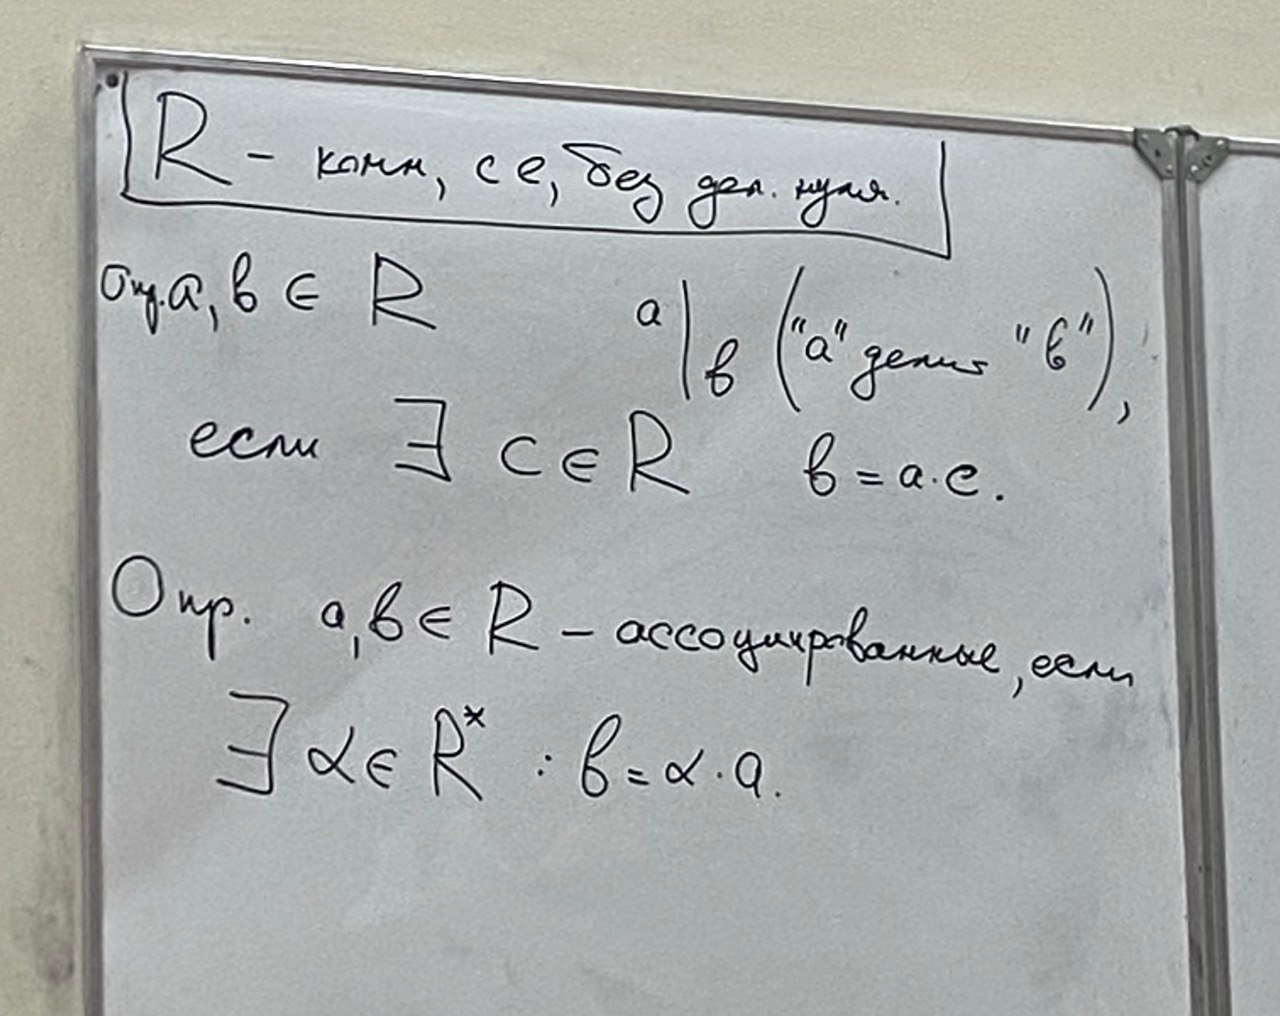 R - комм, с е, без дел. нуля.
Опр. a, b ∈ R a | b ("a" делит "b"),
если ∃ c ∈ R b = a · c.
Опр. a, b ∈ R – ассоциированные, если
∃ α ∈ R* : b = α · a.